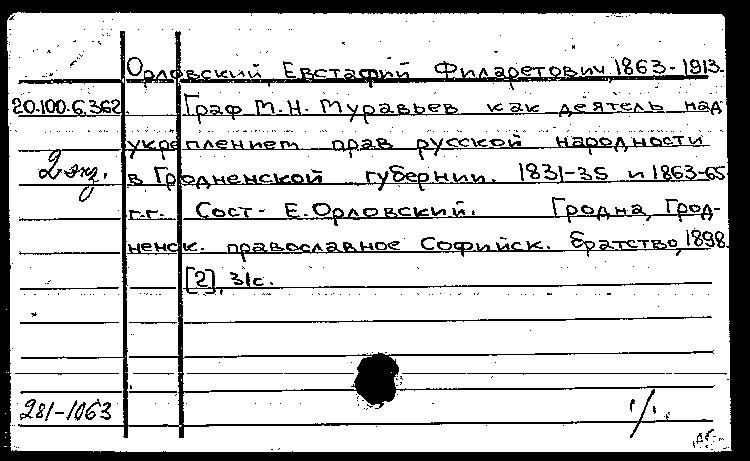 Орловский, Евстафий Филаретович, 1863-1913.
20.100.6.362 Граф М.Н. Муравьев как деятель над
укреплением прав русской народности
2 экз. в Гродненской губернии. 1831-35 и 1863-65
г.г. Сост. Е. Орловский. Гродна, Грод-
ненск. православное Софийск. братство, 1898.
[2], 31с.
281-1063